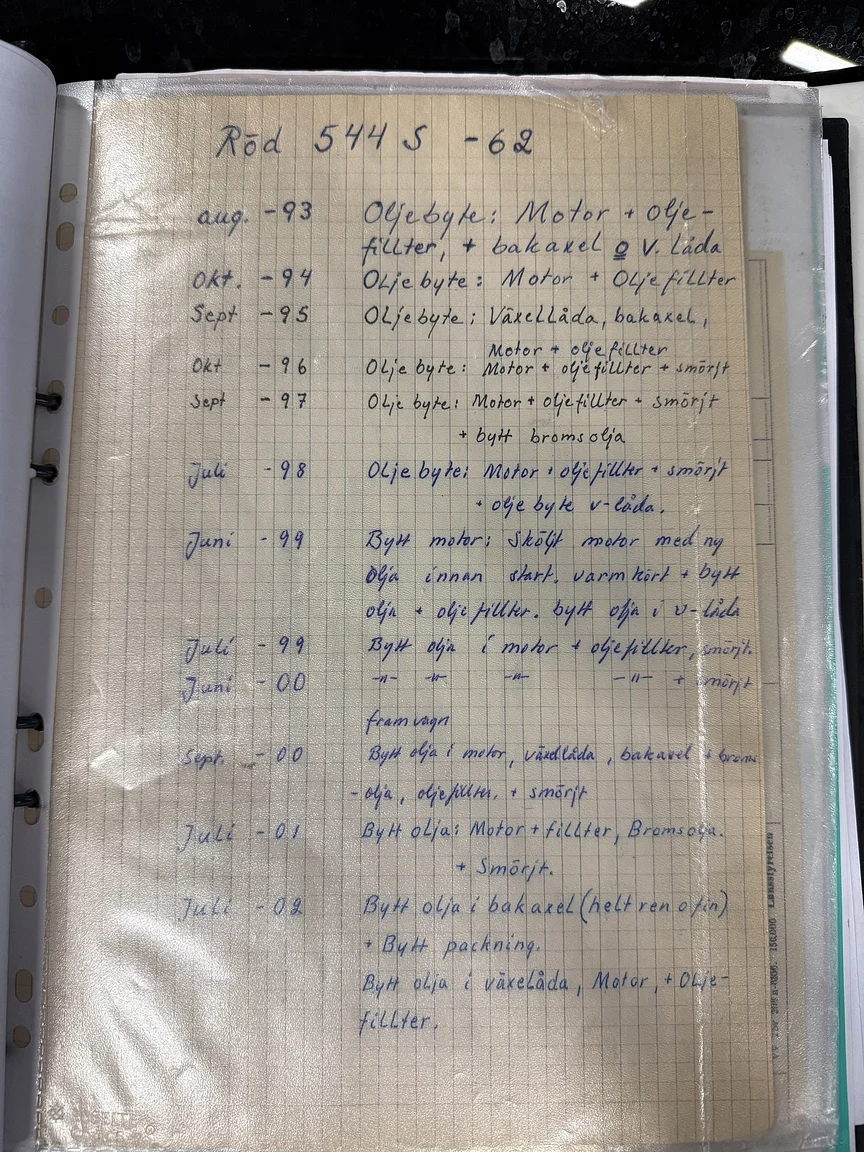 Röd 544 S -62
aug. -93 Oljebyte: Motor + olje-
fillter, + bakaxel o v. låda
Okt. -94 Oljebyte: Motor + Oljefillter
Sept -95 Oljebyte; Växellåda, bakaxel,
Motor + oljefillter
Okt -96 Oljebyte: Motor + oljefillter + smörjt
Sept -97 Oljebyte: Motor + oljefillter + smörjt
+ bytt bromsolja
Juli -98 Oljebyte: Motor + oljefillter + smörjt
+ oljebyte v-låda.
Juni -99 Bytt motor: Sköljt motor med ny
olja innan start. varmkört + bytt
olja + oljefillter. bytt olja i v-låda
Juli -99 Bytt olja i motor + oljefillter, smörjt.
Juni -00 -"- -"- -"- -"- + smörjt
framvagn
Sept. -00 Bytt olja i motor, växellåda, bakaxel + broms
- olja, oljefillter. + smörjt
Juli -01 Bytt olja: Motor + fillter, Bromsolja.
+ Smörjt.
Juli -02 Bytt olja i bakaxel (helt ren o fin)
+ Bytt packning.
Bytt olja i växelåda, Motor, + Olje-
fillter.
150.000 Länsstyrelsen